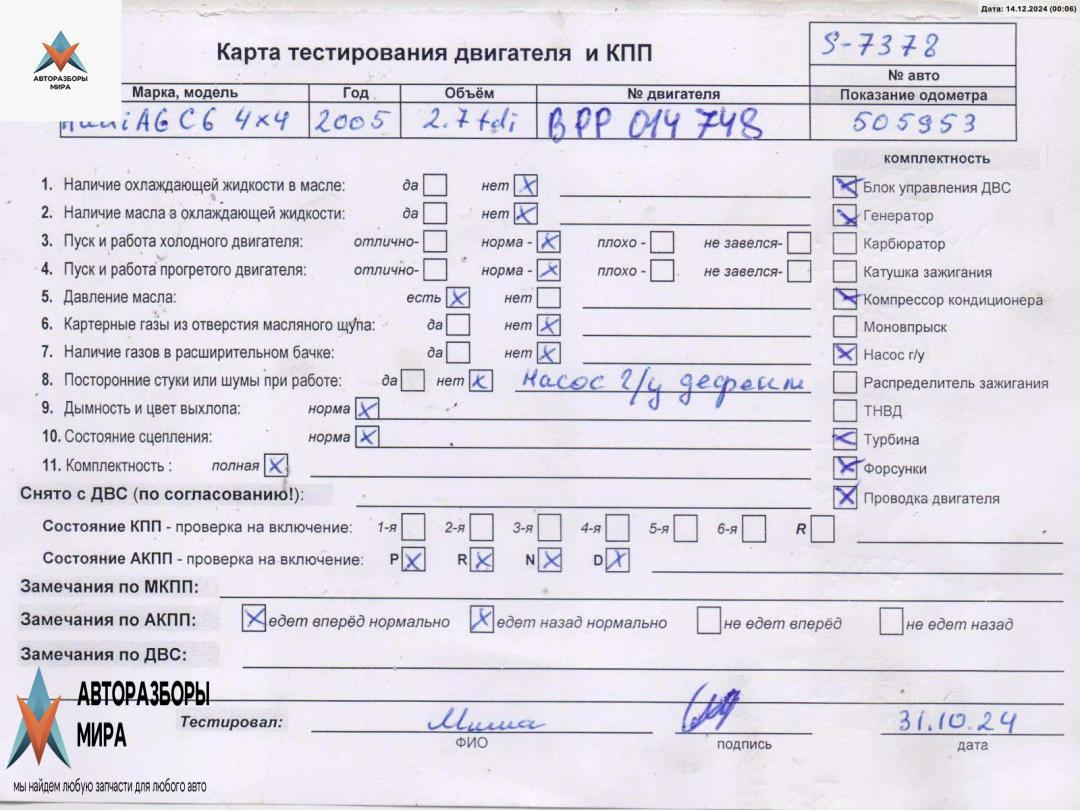 Дата: 14.12.2024 (00:06)
АВТОРАЗБОРЫ
МИРА
Карта тестирования двигателя и КПП
S-7378
№ авто
Марка, модель Год Объём № двигателя Показание одометра
Audi A6 C6 4x4 2005 2.7 tdi BPP 014 748 505953
комплектность
1. Наличие охлаждающей жидкости в масле: да нет
Блок управления ДВС
2. Наличие масла в охлаждающей жидкости: да нет
Генератор
3. Пуск и работа холодного двигателя: отлично- норма - плохо - не завелся-
Карбюратор
4. Пуск и работа прогретого двигателя: отлично- норма - плохо - не завелся-
Катушка зажигания
5. Давление масла: есть нет
Компрессор кондиционера
6. Картерные газы из отверстия масляного щупа: да нет
Моновпрыск
7. Наличие газов в расширительном бачке: да нет
Насос г/у
8. Посторонние стуки или шумы при работе: да нет Насос г/у дефект
Распределитель зажигания
9. Дымность и цвет выхлопа: норма
ТНВД
10. Состояние сцепления: норма
Турбина
11. Комплектность : полная
Форсунки
Снято с ДВС (по согласованию!):
Проводка двигателя
Состояние КПП - проверка на включение: 1-я 2-я 3-я 4-я 5-я 6-я R
Состояние АКПП - проверка на включение: P R N D
Замечания по МКПП:
Замечания по АКПП: едет вперёд нормально едет назад нормально не едет вперёд не едет назад
Замечания по ДВС:
АВТОРАЗБОРЫ
МИРА
Тестировал: Миша 31.10.24
ФИО подпись дата
мы найдем любую запчасти для любого авто